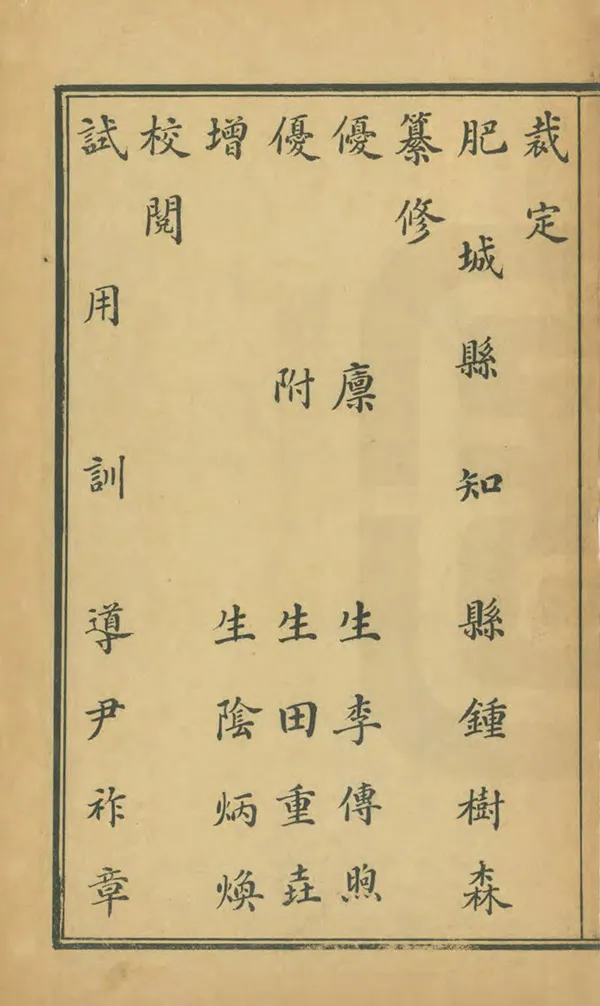 裁定
肥城縣知縣鍾樹森
纂修
優廪生李傳煦
優附生田重垚
增生陰炳煥
校閱
試用訓導尹祚章